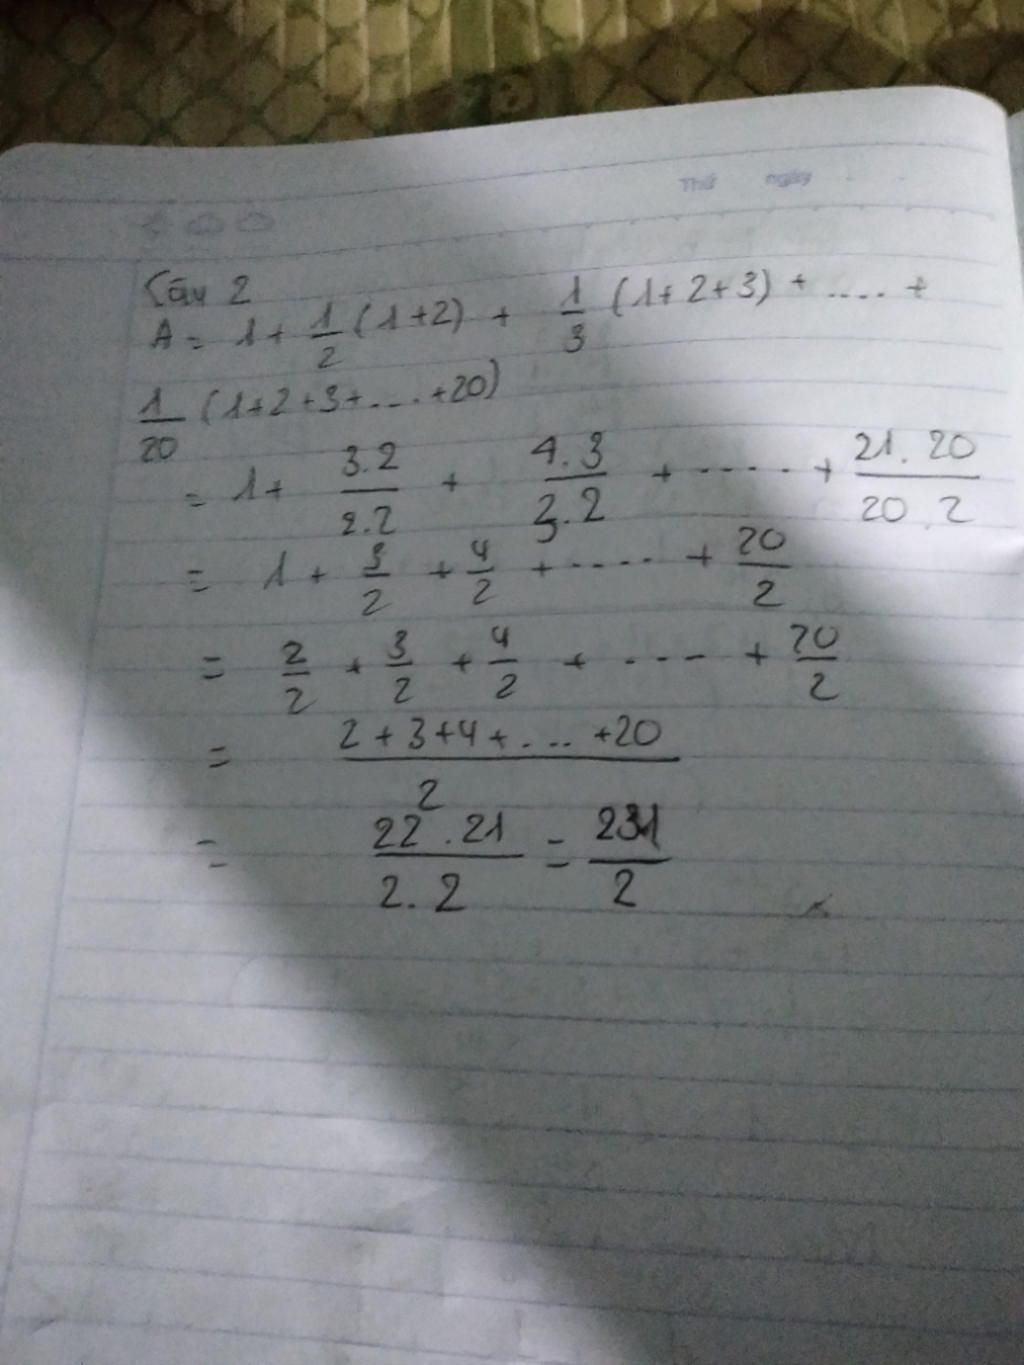 Thứ ngày
Câu 2
A = 1 + 1/2 (1+2) + 1/3 (1+2+3) + .... +
1/20 (1+2+3+....+20)
= 1 + 3.2/2.2 + 4.3/3.2 + ..... + 21.20/20.2
= 1 + 3/2 + 4/2 + ..... + 20/2
= 2/2 + 3/2 + 4/2 + .... + 20/2
= 2+3+4+....+20/2
= 22.21/2.2 = 231/2